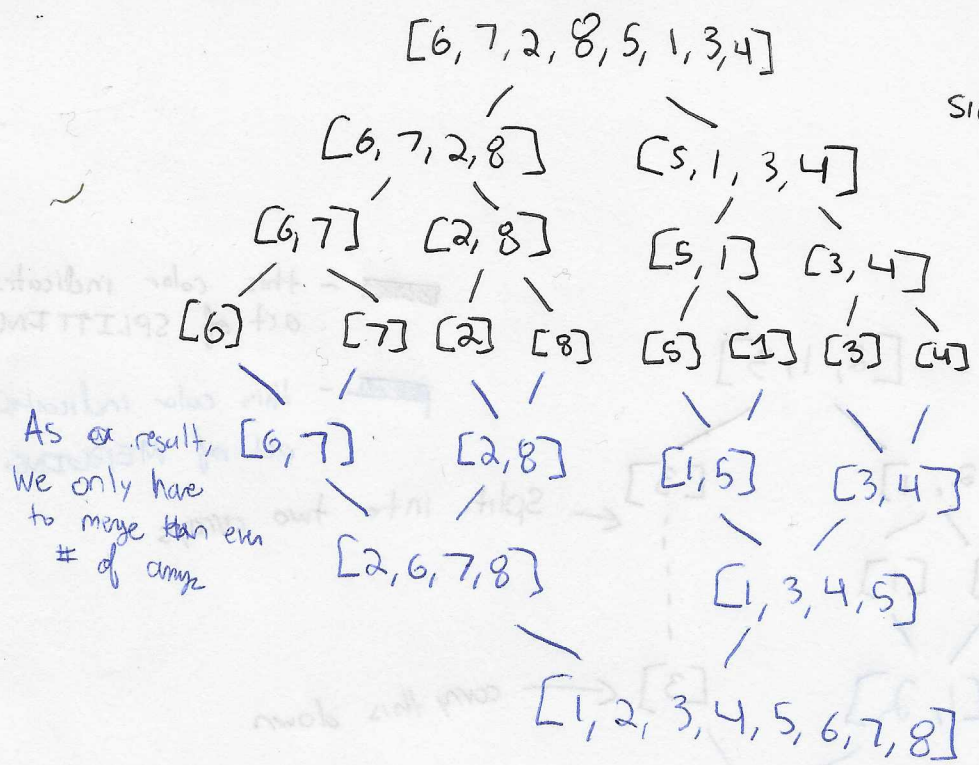 [6, 7, 2, 8, 5, 1, 3, 4]
[6, 7, 2, 8] [5, 1, 3, 4]
[6, 7] [2, 8] [5, 1] [3, 4]
[6] [7] [2] [8] [5] [1] [3] [4]
As a result,
we only have
to merge an even
# of arrays
[6, 7] [2, 8] [1, 5] [3, 4]
[2, 6, 7, 8] [1, 3, 4, 5]
[1, 2, 3, 4, 5, 6, 7, 8]